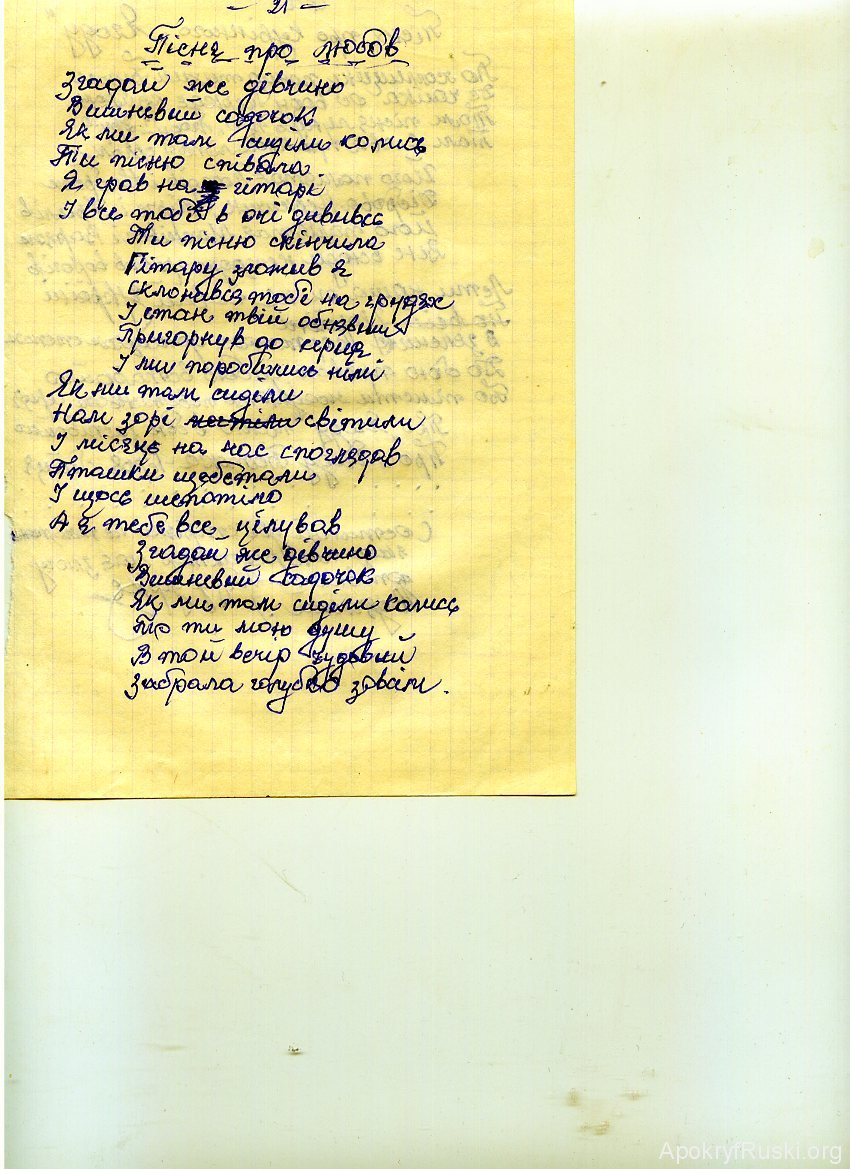 — 21 —
Пісня про любов
Згадай же дівчино
Вишневий садочок
Як ми там сиділи колись
Ти пісню співала
Я грав на гітарі
І все тобі в очі дививсь
Ти пісню скінчила
Гітару зложив я
Склонився тобі на грудях
І стан твій обнявши
Пригорнув до серця
І ми поробились німі
Як ми там сиділи
Нам зорі світили
І місяць на нас споглядав
Пташки щебетали
І щось шепотіло
А я тебе все цілував
Згадай же дівчино
Вишневий садочок
Як ми там сиділи колись
То ти мою душу
В той вечір чудовий
Забрала голубко зовсім.
ApokryfRuski.org